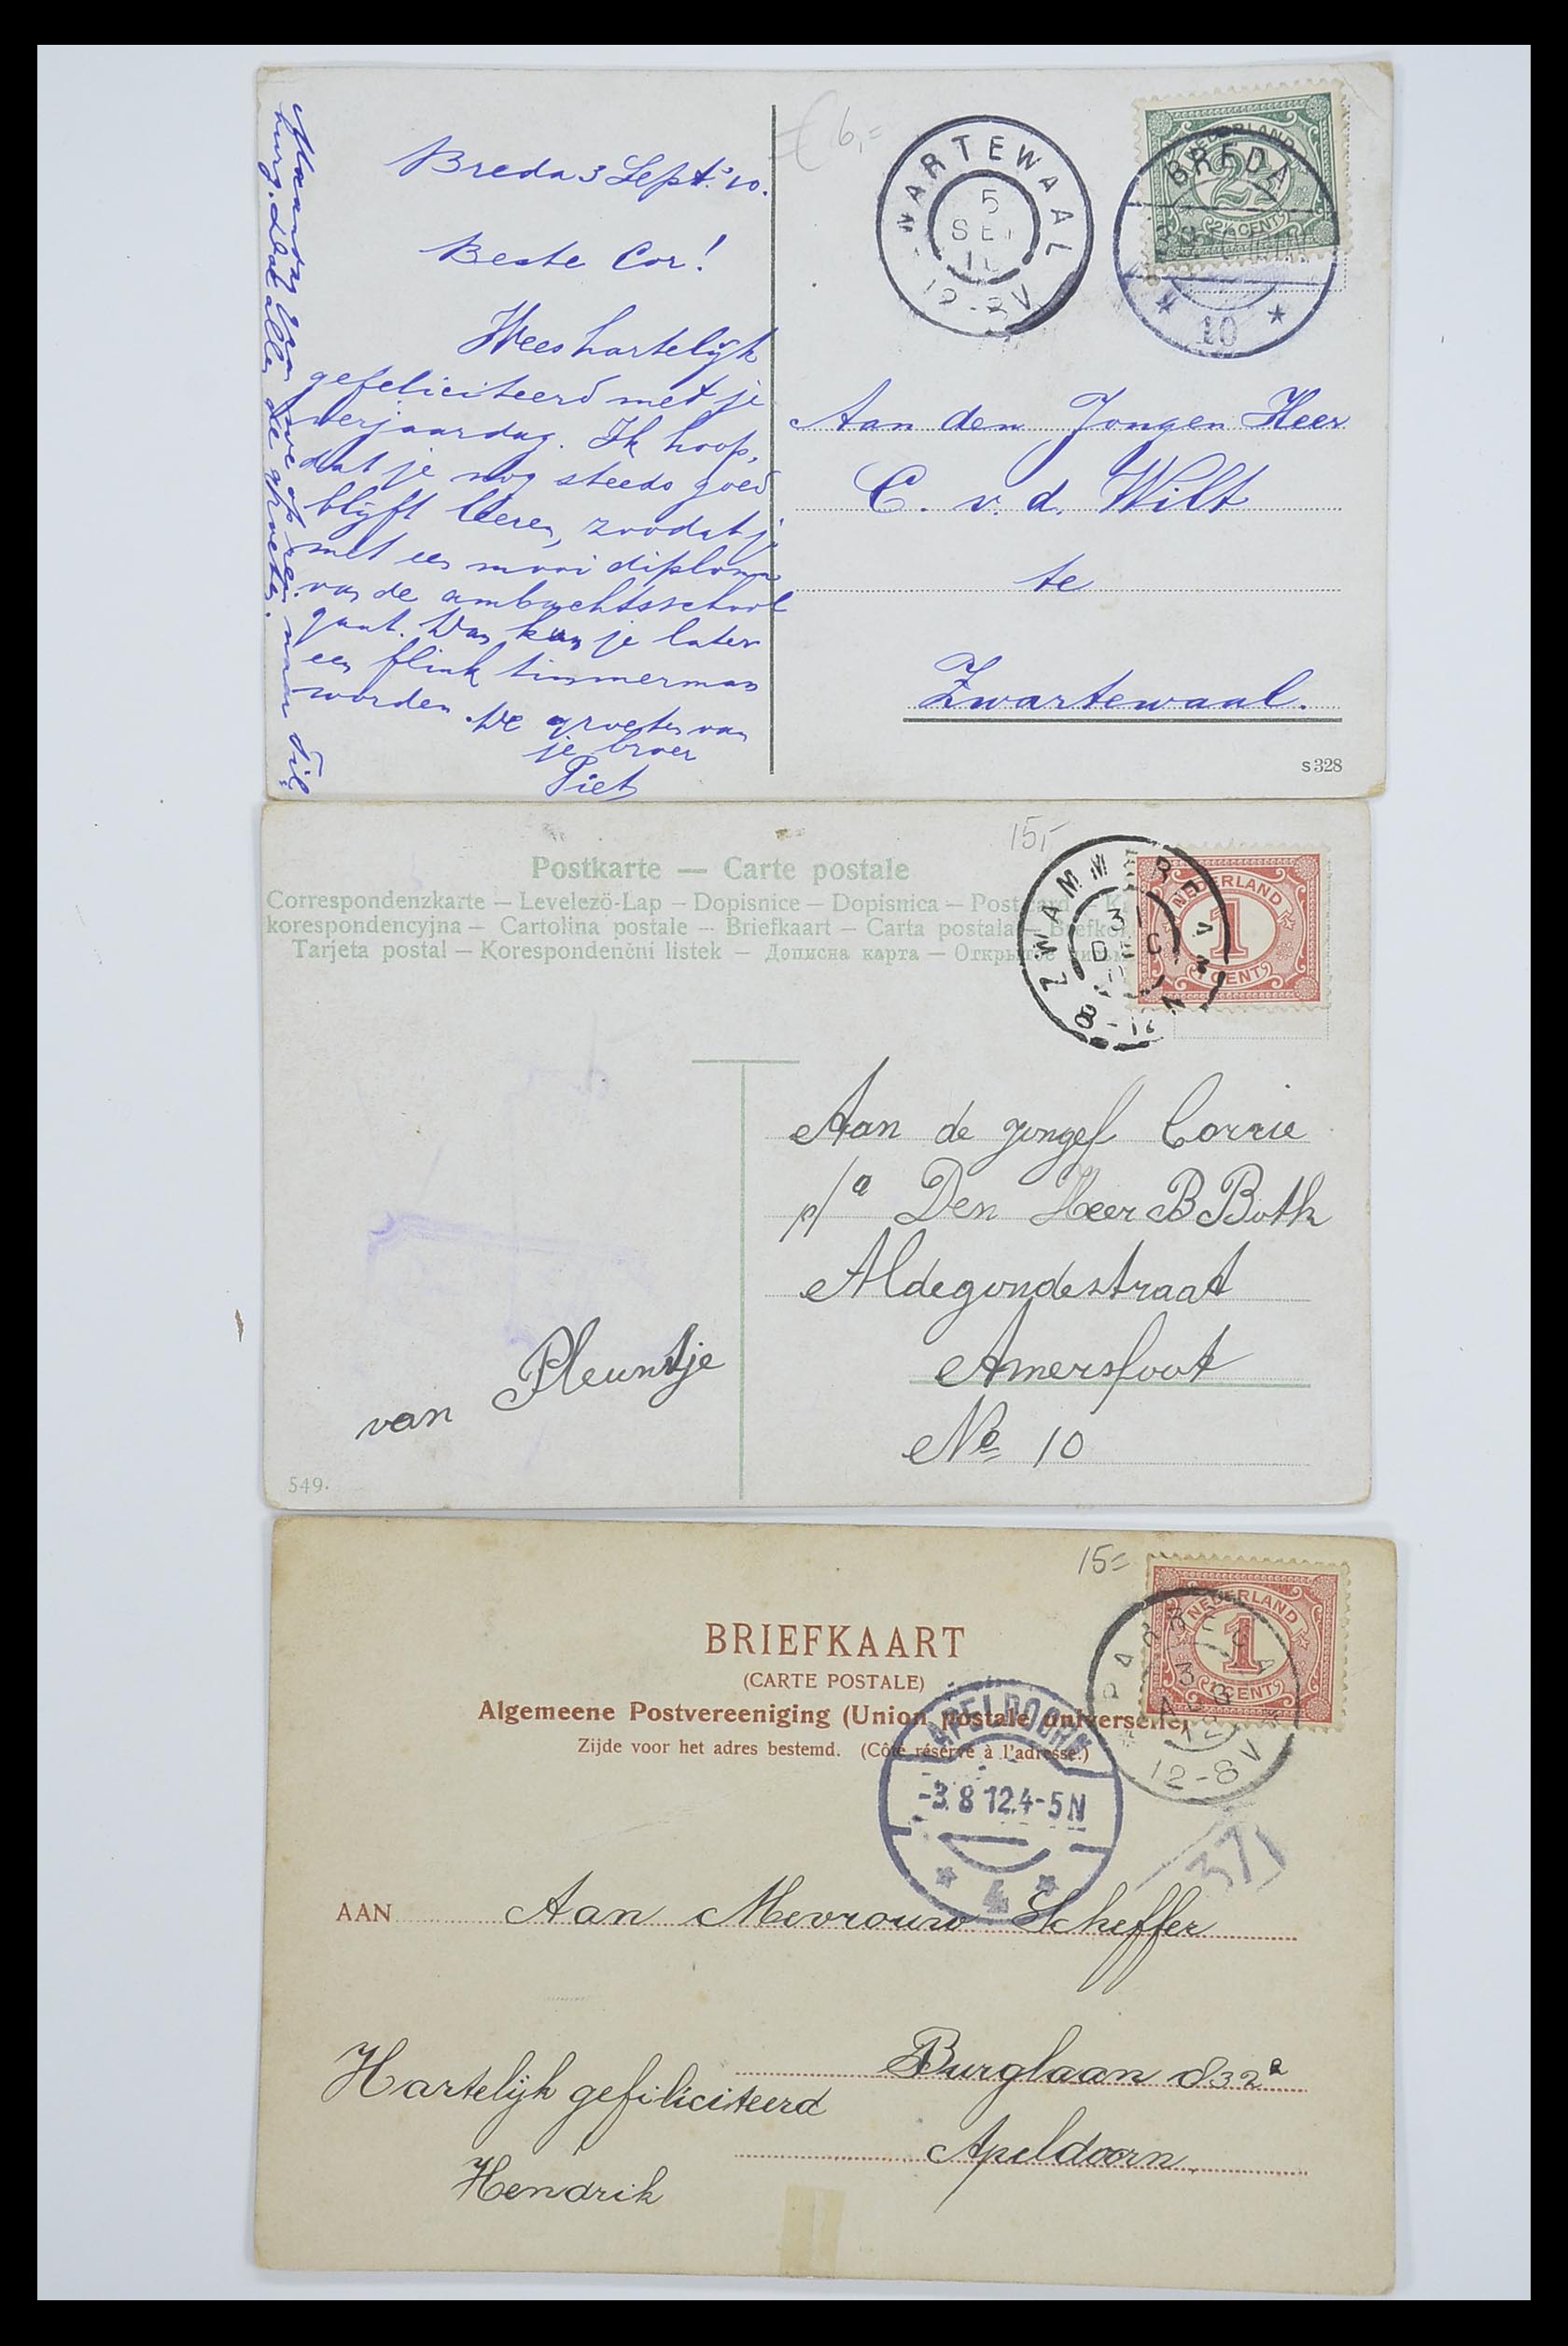 Breda 3 Sept. '10.
Beste Cor!
Wees hartelijk
gefeliciteerd met je
verjaardag. Ik hoop,
dat je nog steeds goed
blijft leeren, zoodat je
met een mooi diploma
van de ambachtsschool
gaat. Dan kan je later
een flink timmerman
worden. De groeten van
je broer
Piet
we op reis naar Til
burg. Doe allen de groeten.
€ 6,=
WARTEWAAL
5
SE
12-8V
NEDERLAND
2½
2½ CENT
BREDA
10
Aan den Jongen Heer
C. v. d. Wilt
te
Zwartewaal.
s 328
15,-
Postkarte — Carte postale
Correspondenzkarte — Levelezö-Lap — Dopisnice — Dopisnica — Post
korespondencyjna — Cartolina postale — Briefkaart — Carta postala — Brefkor
Tarjeta postal — Korespondenční listek — Дописна карта — Открытое письм
ZWAMMERD
31
DEC
8-12 N
NEDERLAND
1
1 CENT
Aan de jongef Corrie
p/a Den Heer B Both
Aldegondestraat
Amersfoot
No 10
van Pleuntje
549.
15=
NEDERLAND
1
1 CENT
PARREGA
3
AUG
12
12-8V
BRIEFKAART
(CARTE POSTALE)
Algemeene Postvereeniging (Union postale universelle)
Zijde voor het adres bestemd. (Côté réservé à l'adresse.)
APELDOORN
-3.8 12.4-5N
4
37
AAN Aan Mevrouw Scheffer
Burglaan 832a
Apeldoorn
Hartelijk gefiliciteerd
Hendrik